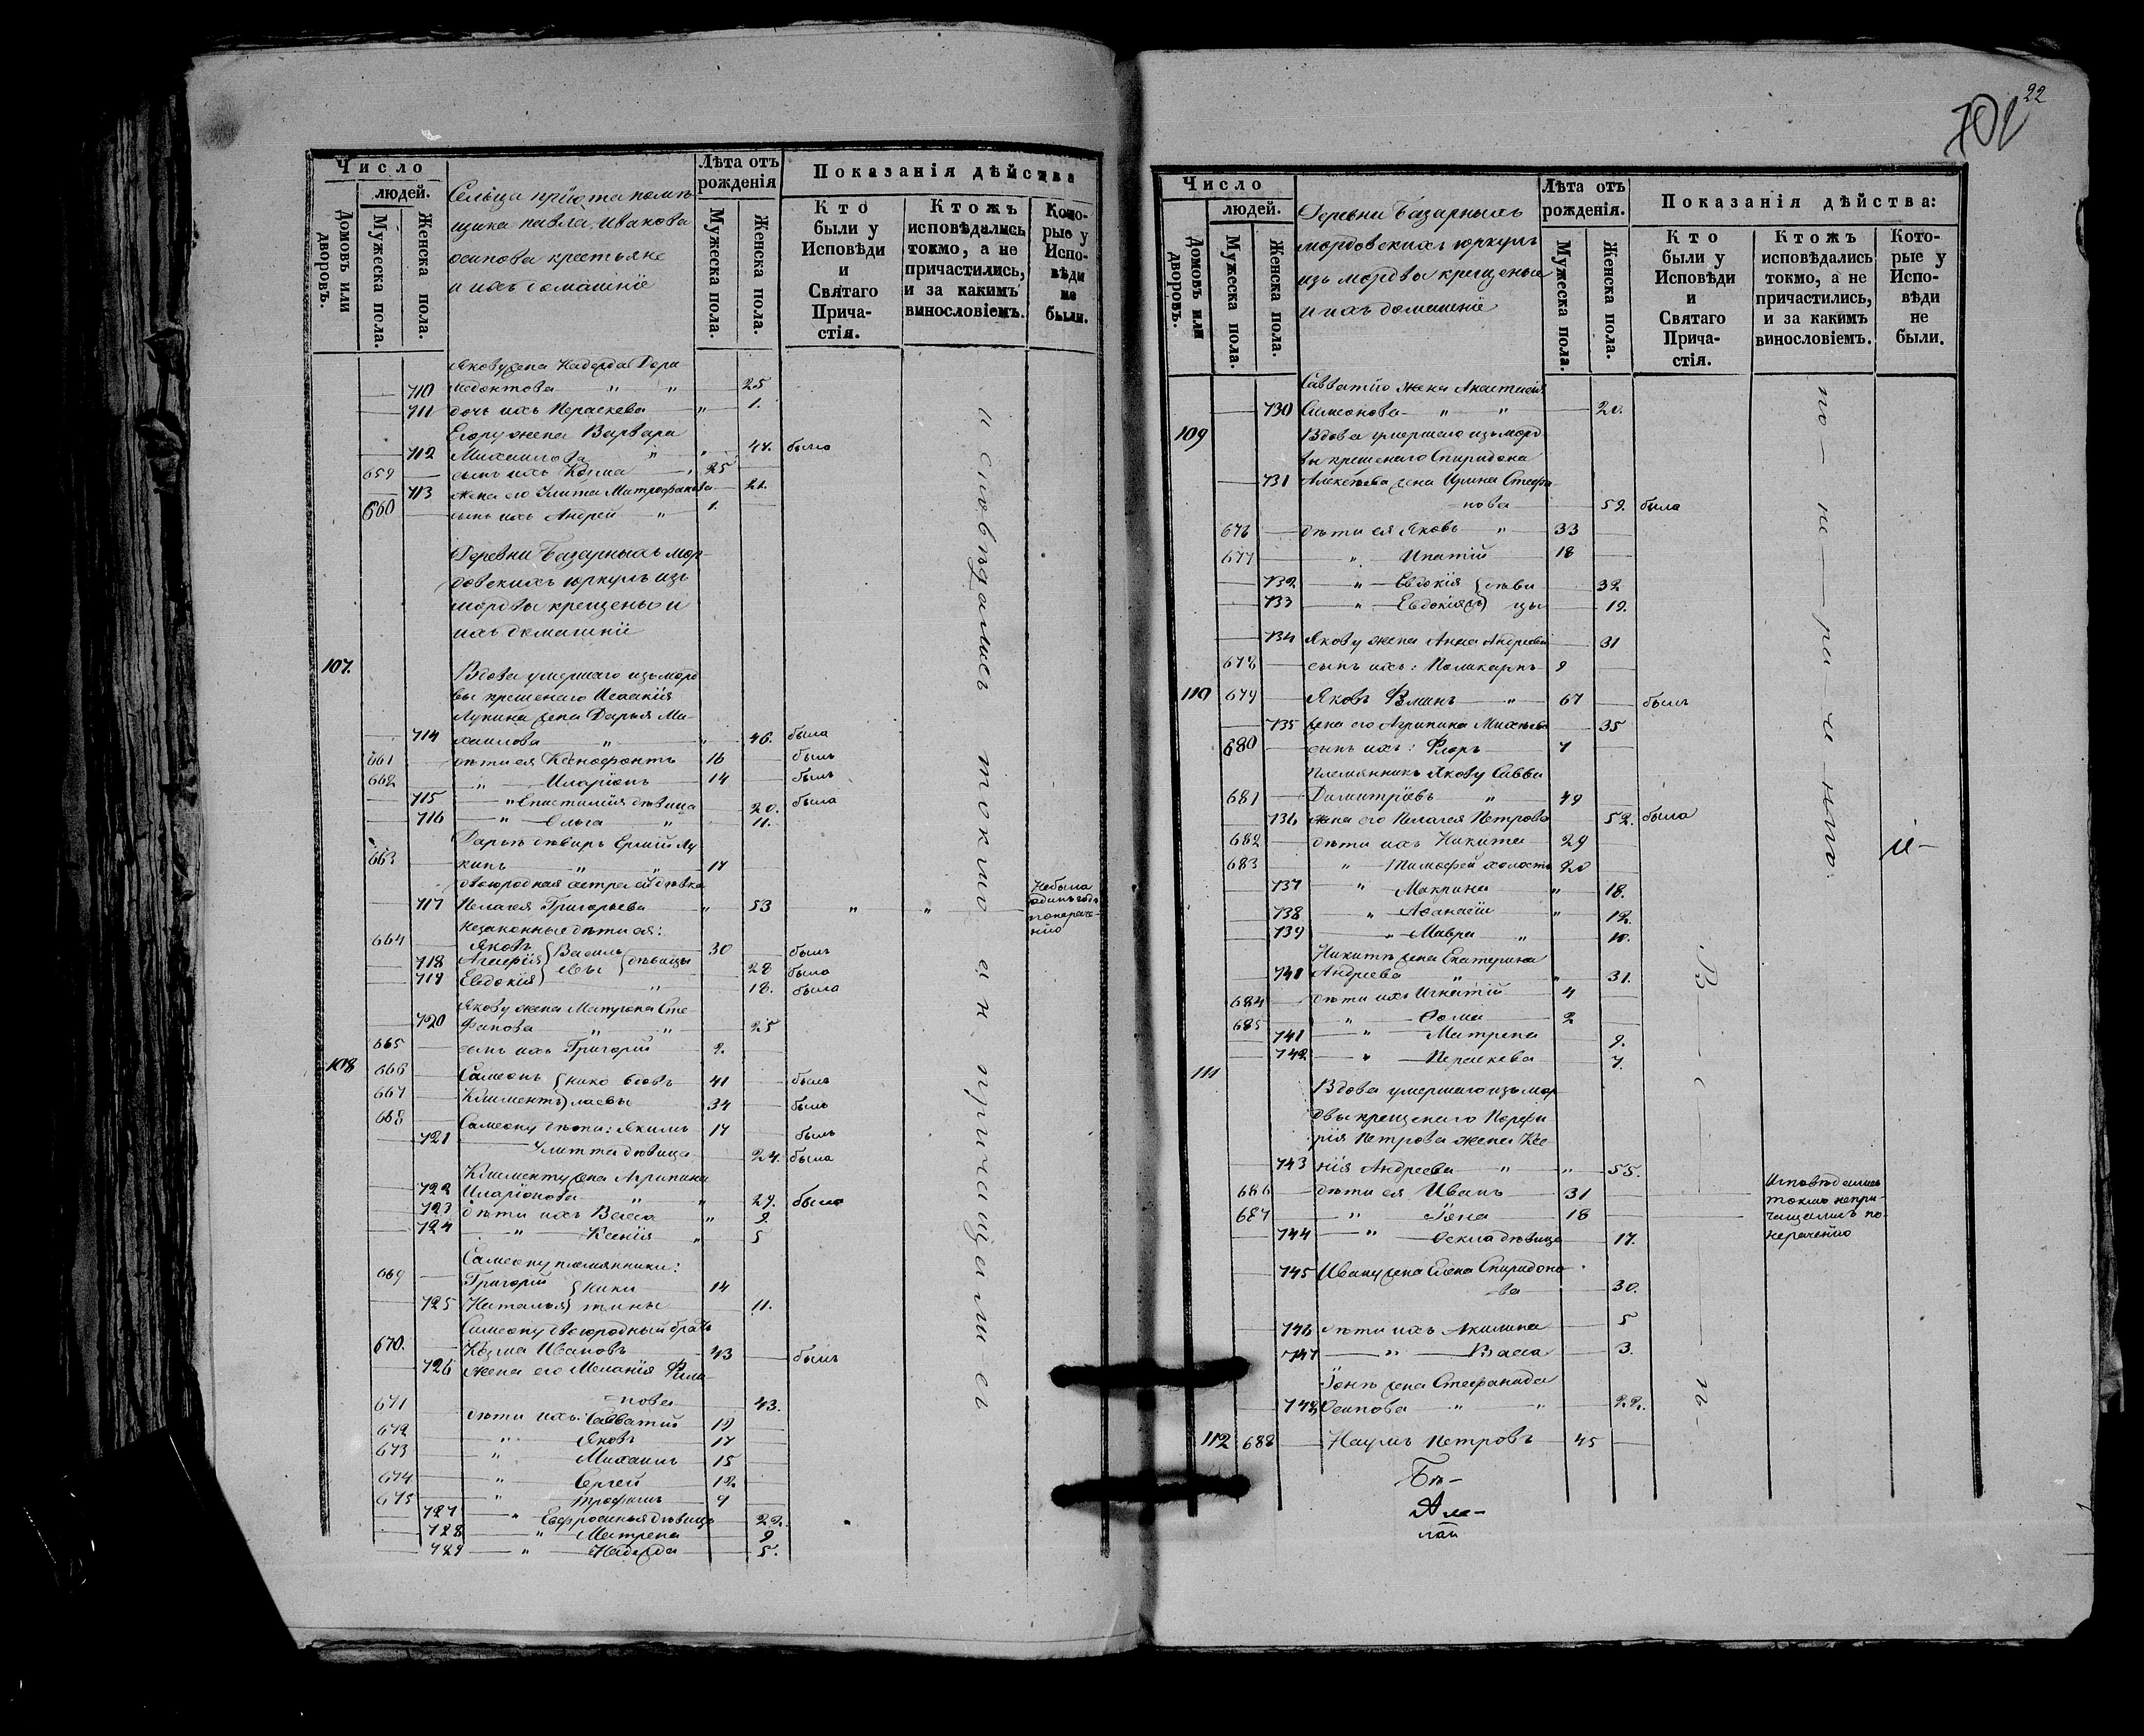 Число
людей.
Домовъ или дворовъ.
Мужеска пола.
Женска пола.
Сельца пріюта помѣ-
щика павла Иванова
осипова крестьяне
и ихъ домашніе
Лѣта отъ рожденія
Мужеска пола.
Женска пола.
Показанія дѣйства
Кто были у Исповѣди и Святаго Прича-стія.
Ктожъ исповѣдались токмо, а не причастились, и за какимъ винословіемъ.
Кото-рые у Испо-вѣди не были.
Якову жена Надежда Дори
710 медонтова " " 25
711 дочь ихъ Параскева " 1.
Егору жена Варвара
712 Михаилова " " 44. была
659 сынъ ихъ Козма " 25
713 жена его Улита Митрофанова 21.
660 сынъ ихъ Андрей " 1.
Деревни Базарныхъ мор-
довскихъ юркулъ изъ
мордвы крещеные и
ихъ домашніе
107. Вдова умершаго изъ морд
вы крещенаго Исаакія
Лукина жена Дарья Ми-
714 хаилова " " 46. была
661 дѣти ея Ксенофонтъ 16 былъ
662 " Иларіонъ 14 былъ
715 " дѣвица 20. была
716 " Ольга " 11.
663 Дарьѣ дѣверь Ермій Лу
кинъ " " 17
двоюродная сестра ей дѣвка
717 Пелагея Григорьева " 53 " " Небыла одинъ годъ понераче-нію
незаконные дѣти ея:
664 Яковъ Василь 30 былъ
718 евы дѣвицы 28 была
719 Евдокія " 18. была
Якову жена Матрона Сте
720 фанова " " 25
665 сынъ ихъ Григорій 2.
108 666 Симеонъ Нико вдовъ 41 былъ
667 Климентъ лаевы 34 былъ
668 Симеону дѣти: Якимъ 17 былъ
721 Улитта дѣвица 24. была
Клименту жена Агрипина
722 Иларіонова " " 29. была
723 дѣти ихъ Васса " 9.
724 " Ксенія " 5
Симеону племянники:
669 Григорій Ники 14
725 Наталья тины 11.
Симеону двоюродный братъ
670. Козма Ивановъ 43 былъ
726 жена его Меланія Фили-
нова 43.
671 дѣти ихъ: Савватій 19
672 " Яковъ 17
673 " Михаилъ 15
674 " Сергей 12.
675 " Трофимъ 9
727 " Евфросинья дѣвица 22.
728 " Матрена 9
729 " Надежда 5.
исповѣдались токмо а не причащались
22
702
Число
людей.
Домовъ или дворовъ.
Мужеска пола.
Женска пола.
Деревни Базарныхъ
мордовскихъ юркулъ
изъ мордвы крещеные
и ихъ домашніе
Лѣта отъ рожденія.
Мужеска пола.
Женска пола.
Показанія дѣйства:
Кто были у Исповѣди и Святаго Прича-стія.
Ктожъ исповѣдались токмо, а не причастились, и за какимъ винословіемъ.
Кото-рые у Испо-вѣди не были.
Савватію жена Анастасія
730 Симеонова " " 20.
109 Вдова умершаго изъ морд
вы крещенаго Спиридона
731 Алексѣева жена Ирина Стефа
нова 59. была
676 дѣти ея Яковъ " 33
677 " Ипатій 18
732 " Евдокія дѣви 32
733 " Евдокія цы 19.
734 Якову жена Анна Андреева 31
678 сынъ ихъ: Поликарпъ 9
110 679 Яковъ " 67 былъ
735 жена его Агрипина Михѣева 35
680 сынъ ихъ: Флоръ 7
Племянникъ Якову Савви
681 Димитріевъ " 49
736 жена его Пелагея Петрова 52. была
682 дѣти ихъ Никита 29
683 " Тимофей холостъ 20
737 " Макрина " 18.
738 " Афанасія " 12.
739 " Мавра " 10.
Никитѣ жена Екатерина
740 Андреева " " 31.
684 дѣти ихъ Игнатій 4
685 " Фома 2
741 " Матрена 9.
742 " Параскева 7.
111 Вдова умершаго изъ мор
двы крещенаго Порфи
рія Петрова жена Ксе
743 нія Андреева " " 55.
686 дѣти ея Иванъ 31
687 " Іона 18
744 " Фекла дѣвица 17.
Исповѣдались токмо непри-чащались по-нераченію
745 Ивану жена Елена Спиридоно
ва 30.
746 дѣти ихъ Акилина 5
747 " Васса 3.
Іонѣ жена Стефанида
748 Осипова " " 22.
112 688 Наумъ Петровъ 45
по-не-ра-че-нію.